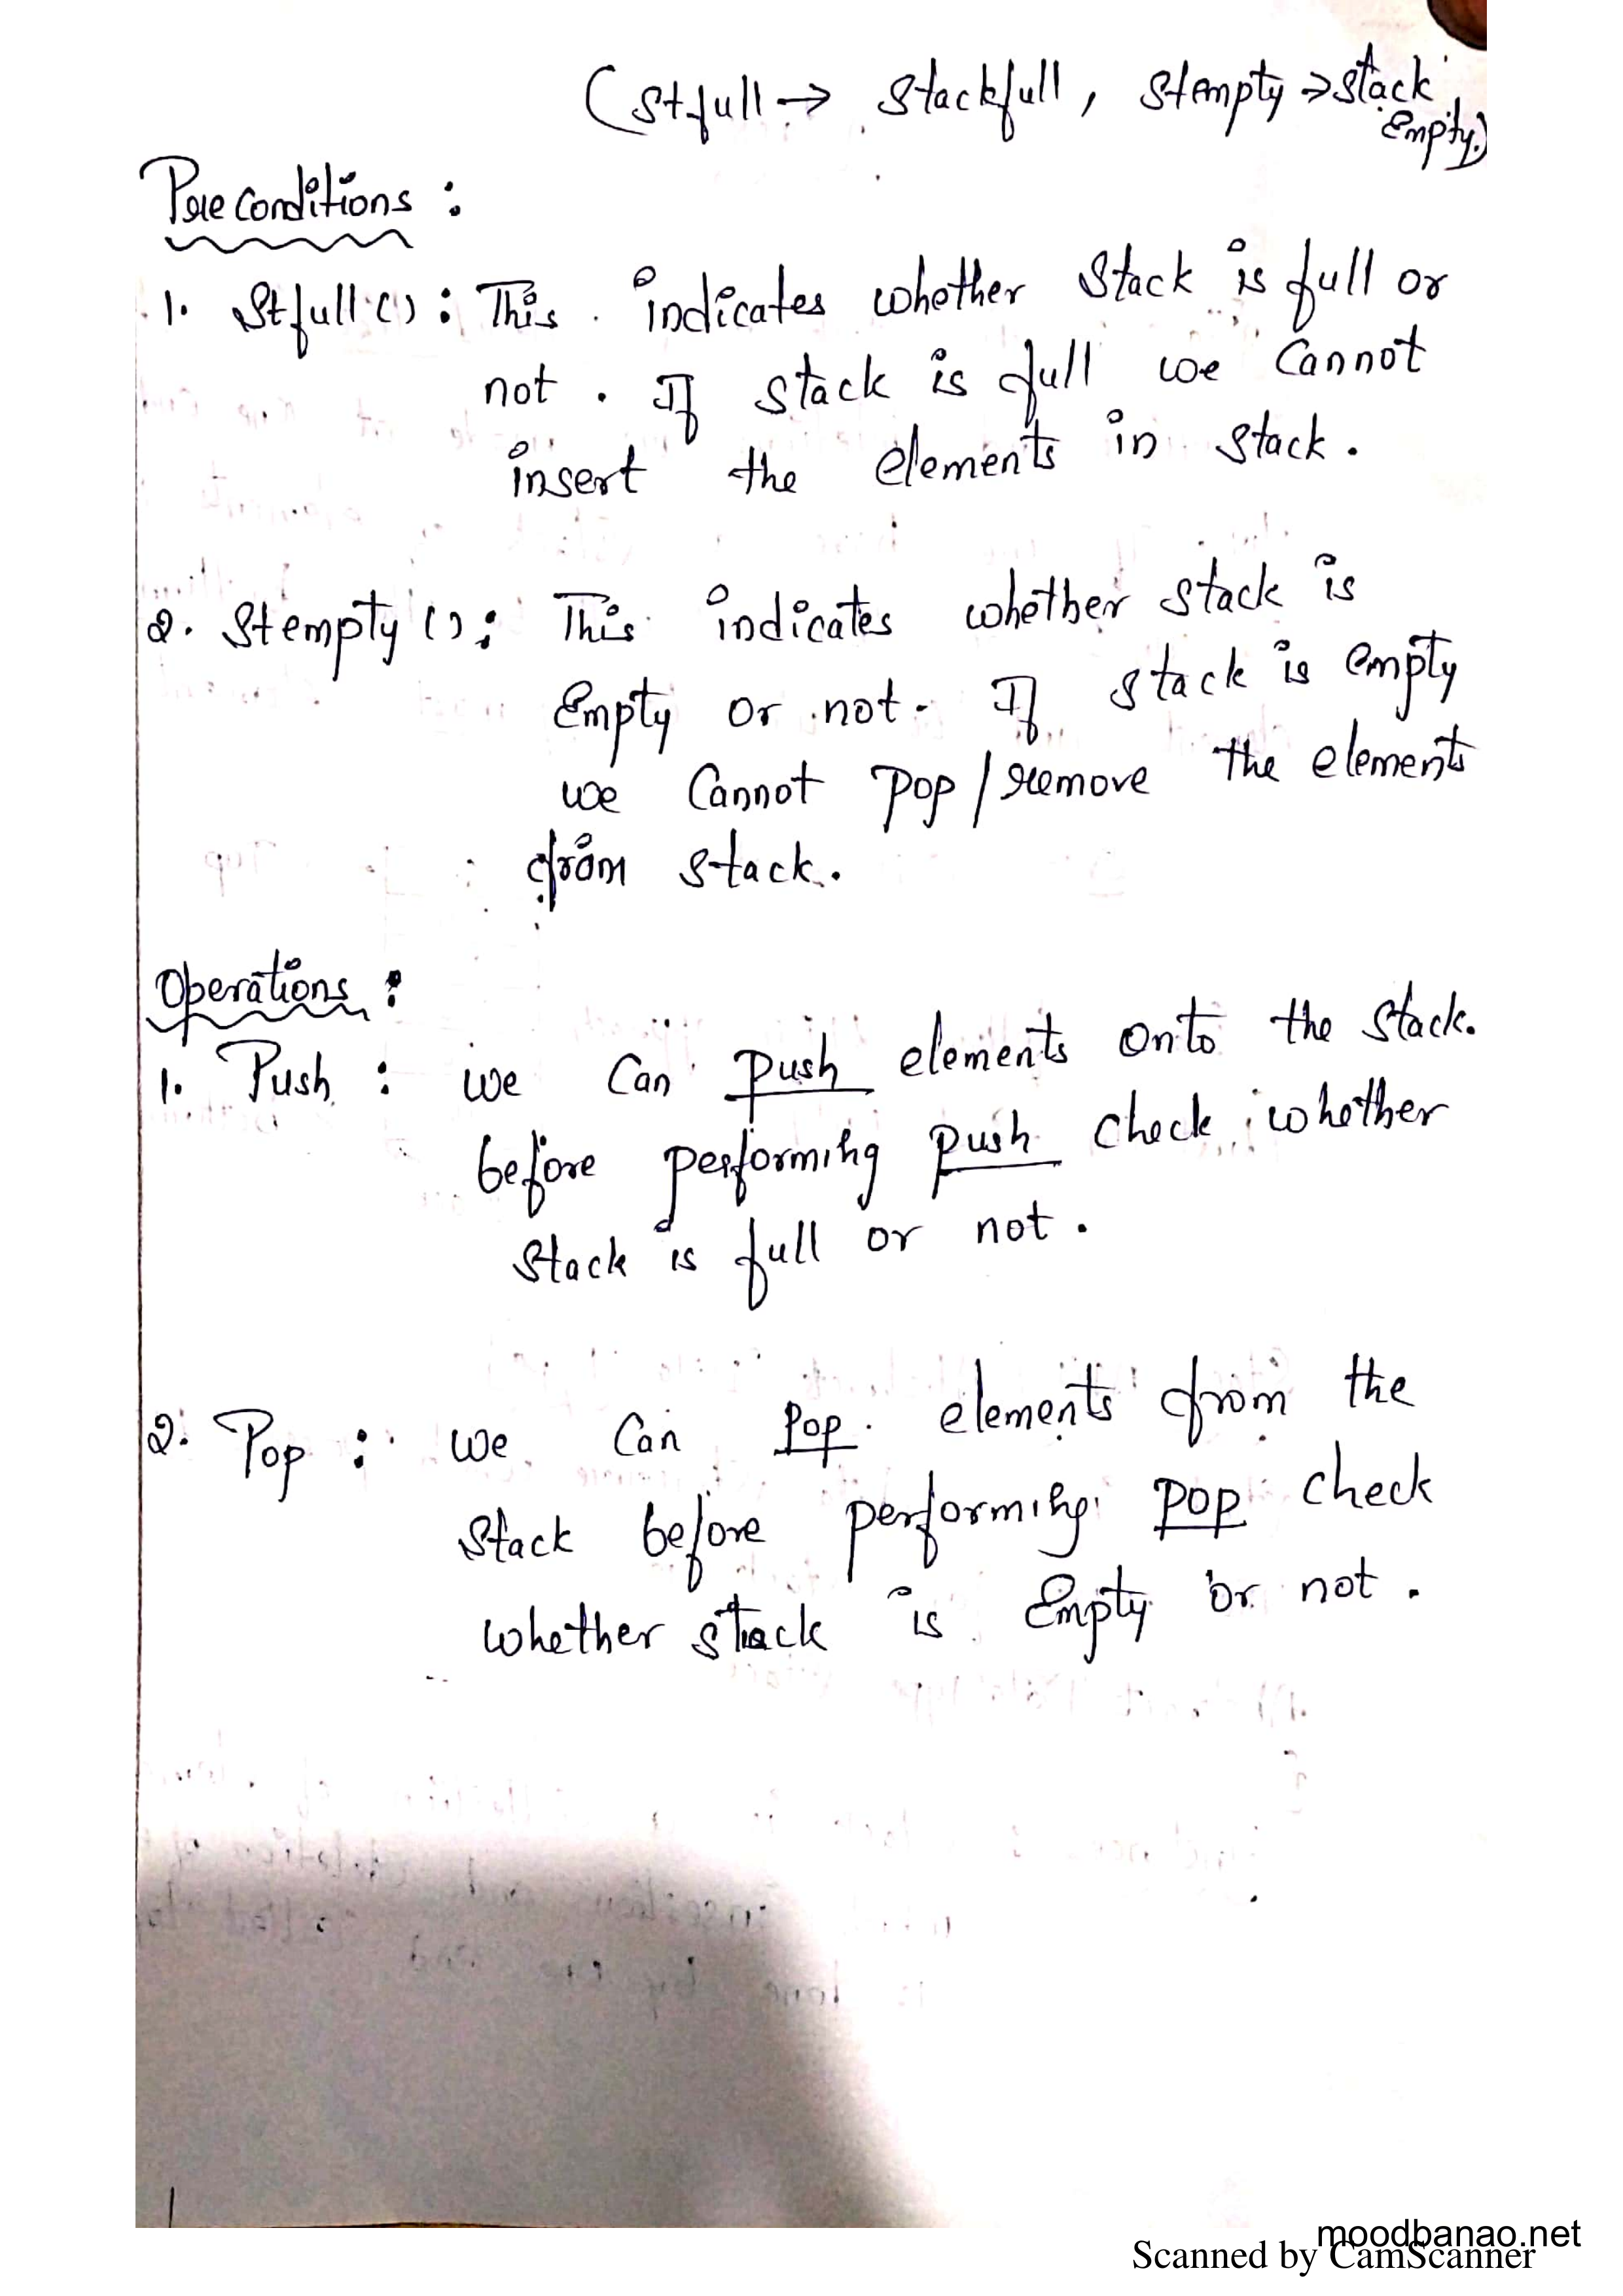 (Stfull → Stackfull, Stempty → Stack
Empty.)
Preconditions :
1. Stfull() : This indicates whether Stack is full or
not. If Stack is full we Cannot
insert the elements in Stack.
2. Stempty() : This indicates whether Stack is
Empty or not. If Stack is empty
we Cannot Pop/remove the elements
from Stack.
Operations :
1. Push : we Can Push elements onto the Stack.
before performing Push Check whether
Stack is full or not.
2. Pop : we Can Pop elements from the
Stack before performing Pop check
whether stack is Empty or not.
moodbanao.net
Scanned by CamScanner